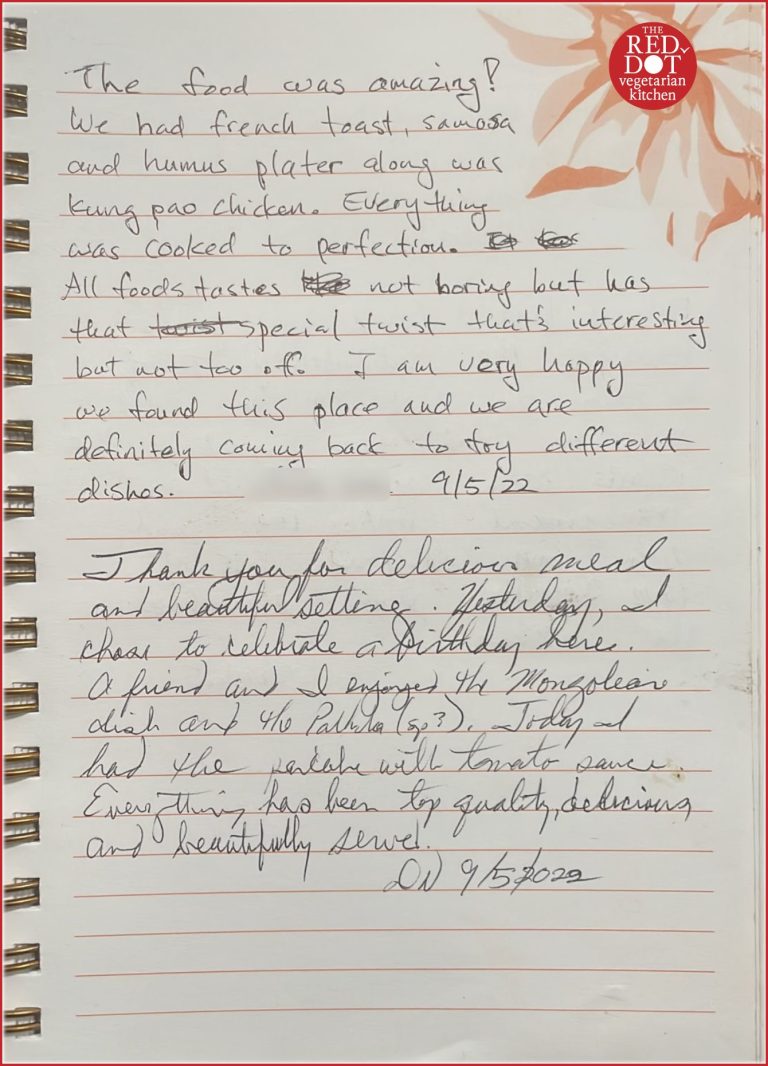 THE
RED
DOT
vegetarian
kitchen
The food was amazing!
We had french toast, samosa
and humus plater along was
kung pao chicken. Everything
was cooked to perfection.
All foods tastes not boring but has
that twist special twist that's interesting
but not too off. I am very happy
we found this place and we are
definitely coming back to try different
dishes. 9/5/22
Thank you for delicious meal
and beautiful setting. Yesterday, I
chose to celebrate a birthday here.
A friend and I enjoyed the Mongolean
dish and the (sp?). Today I
had the with tomato sauce.
Everything has been top quality, delicious
and beautifully served.
DN 9/5/2022